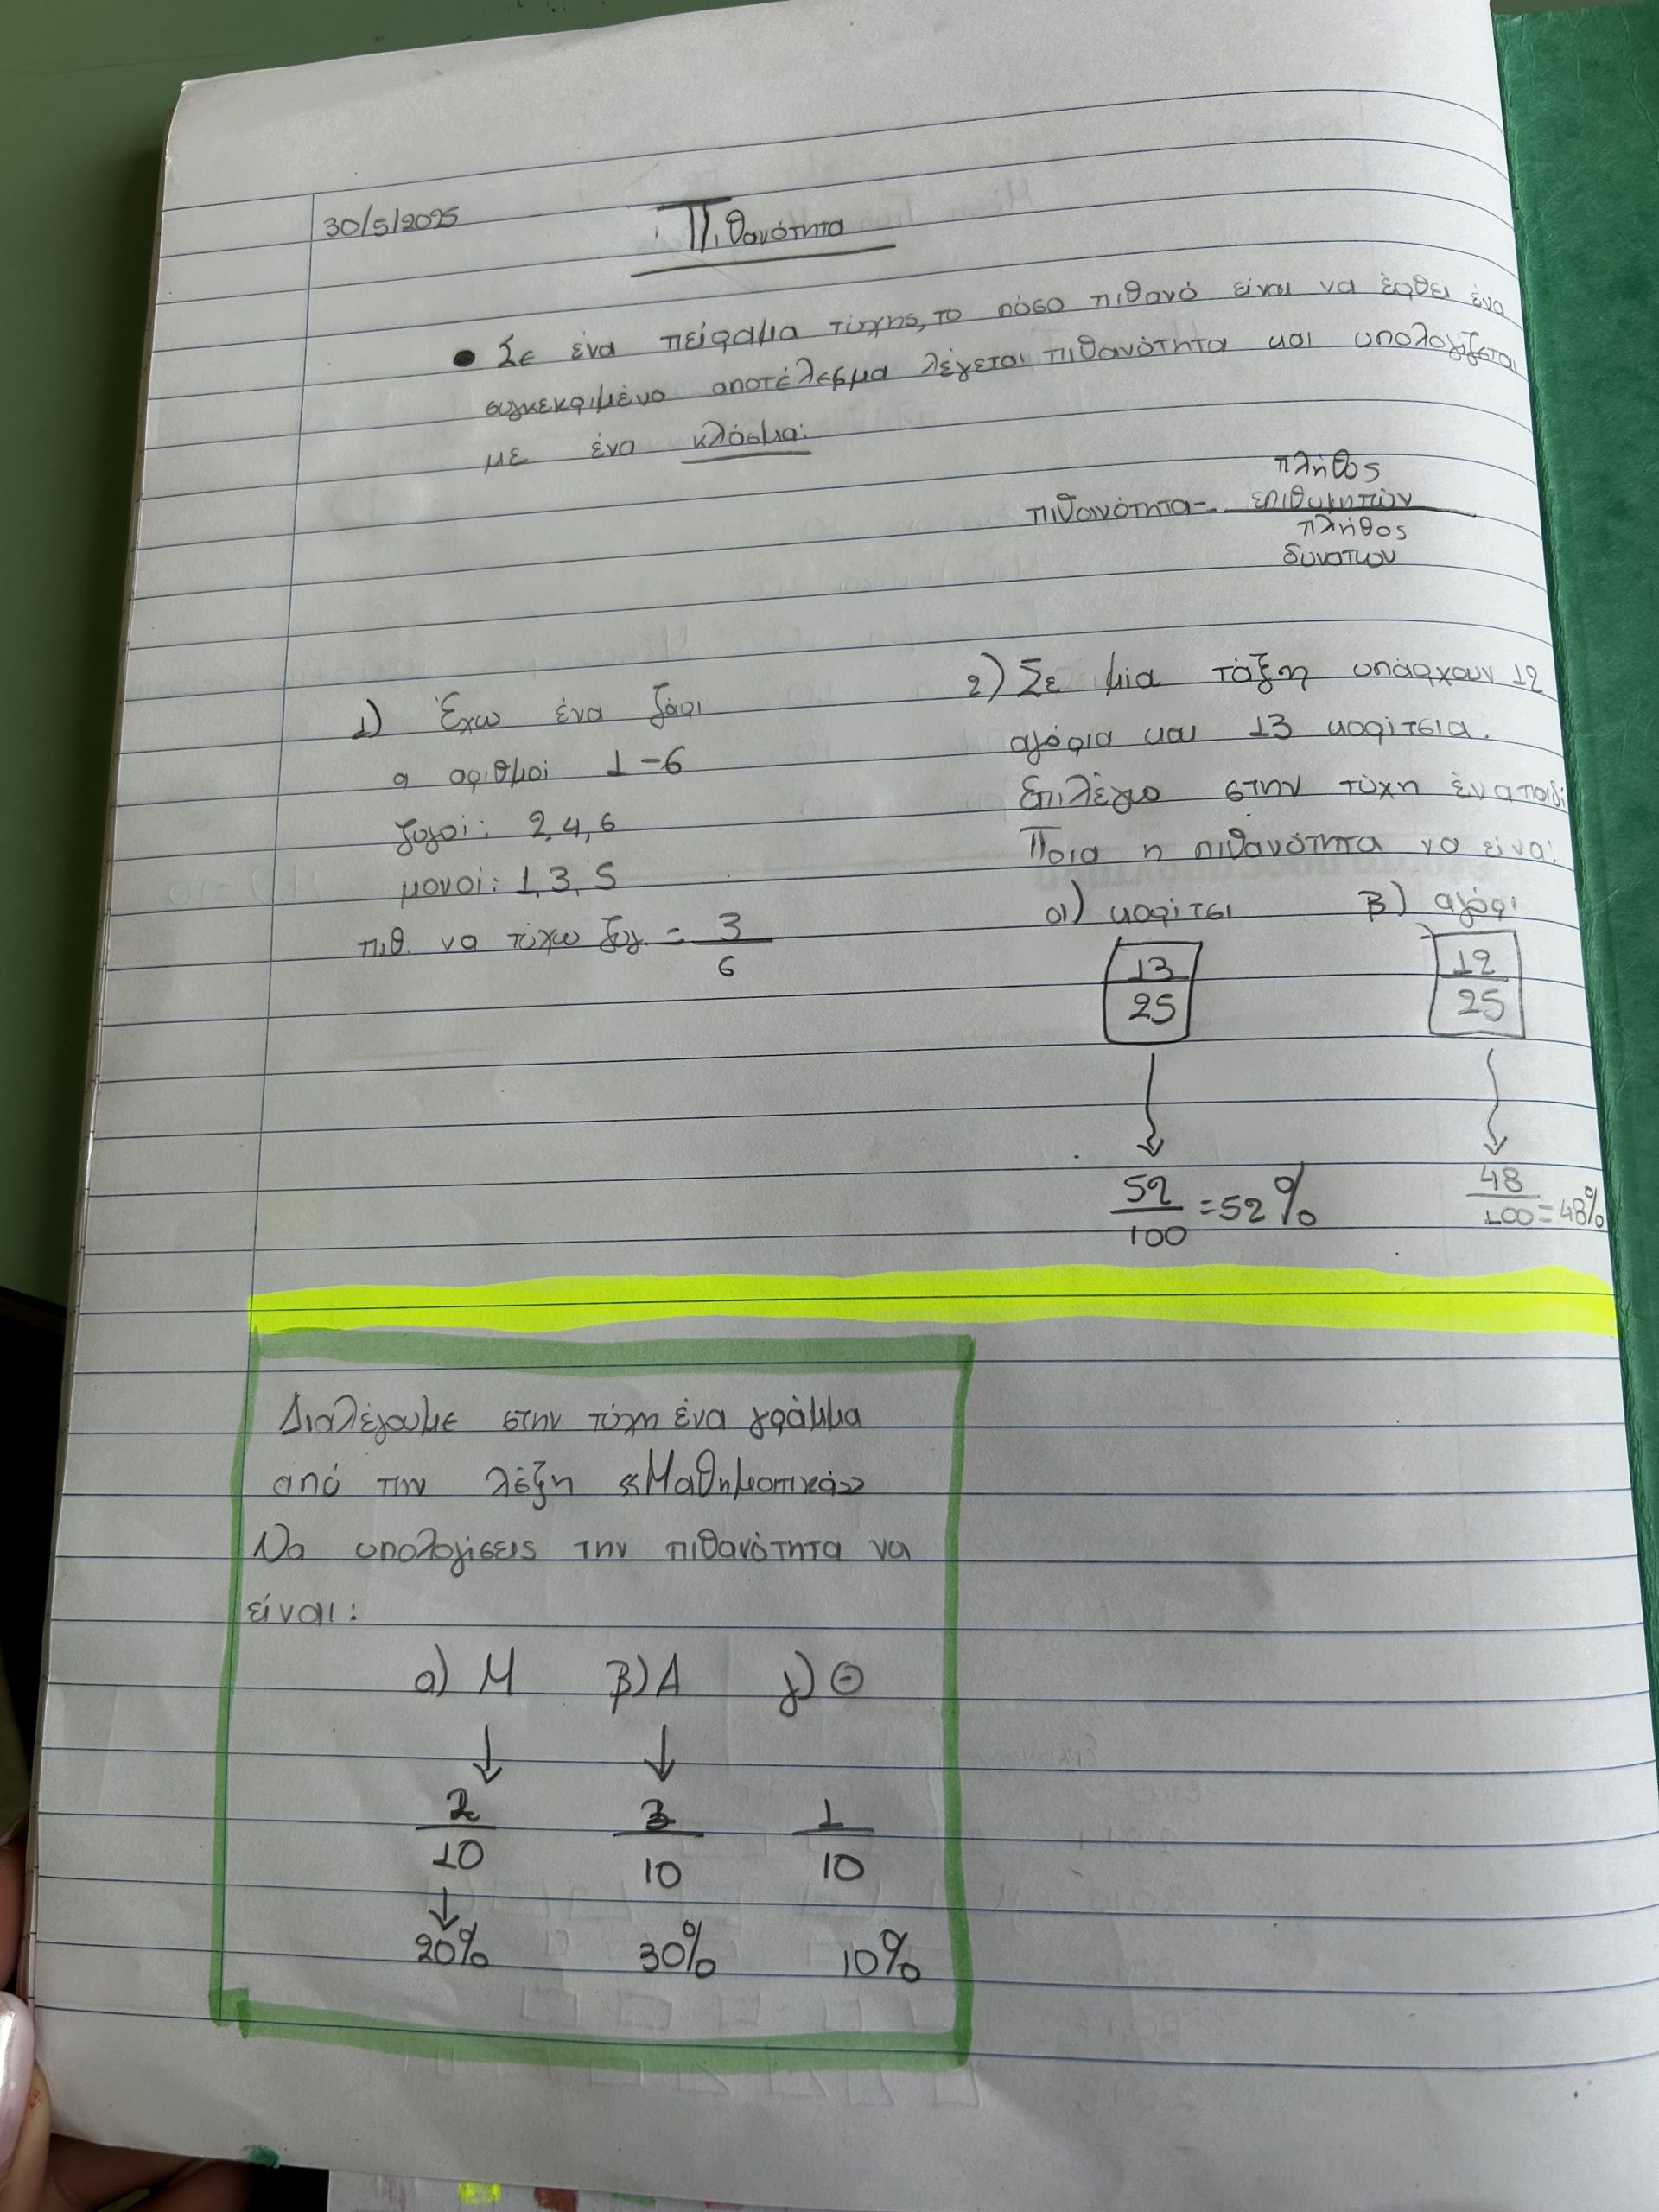 30/5/2025
Πιθανότητα
• Σε ένα πείραμα τύχης, το πόσο πιθανό είναι να έρθει ένα
συγκεκριμένο αποτέλεσμα λέγεται πιθανότητα και υπολογίζεται
με ένα κλάσμα:
πλήθος
πιθανότητα = επιθυμητών
πλήθος
δυνατών
1) Έχω ένα ζάρι
α αριθμοί 1-6
ζυγοί: 2,4,6
μονοί: 1,3,5
πιθ. να τύχω ζυγ. = 3
6
2) Σε μία τάξη υπάρχουν 12
αγόρια και 13 κορίτσια.
Επιλέγω στην τύχη ένα παιδί
Ποια η πιθανότητα να είναι:
α) κορίτσι β) αγόρι
13 12
25 25
52 = 52% 48 = 48%
100 100
Διαλέγουμε στην τύχη ένα γράμμα
από την λέξη «Μαθηματικά»
Να υπολογίσεις την πιθανότητα να
είναι:
α) Μ β) Α γ) Θ
2 3 1
10 10 10
20% 30% 10%